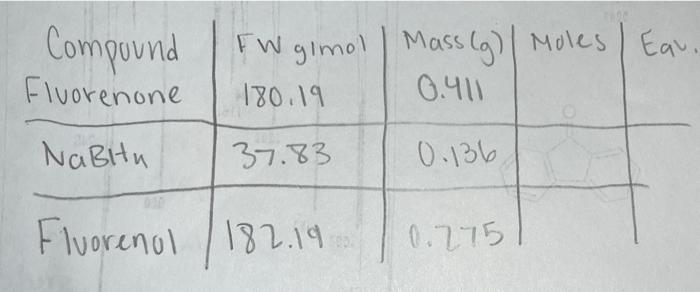 Compound FW g/mol Mass (g) Moles Eqv.
Fluorenone 180.19 0.411
NaBH4 37.83 0.136
Fluorenol 182.19 0.275